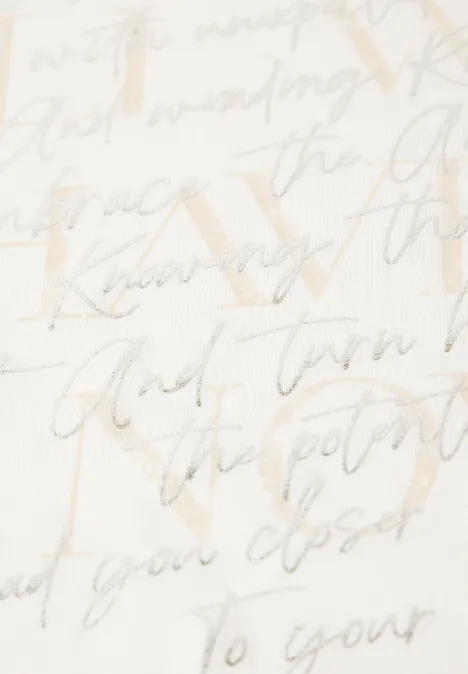 with
And winding
Embrace the
HAV
Knowing the
And turn
NO
the potent
ad you closer
To your